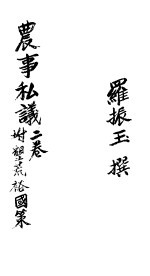 羅振玉撰
農事私議二卷
坿墾荒裕國策